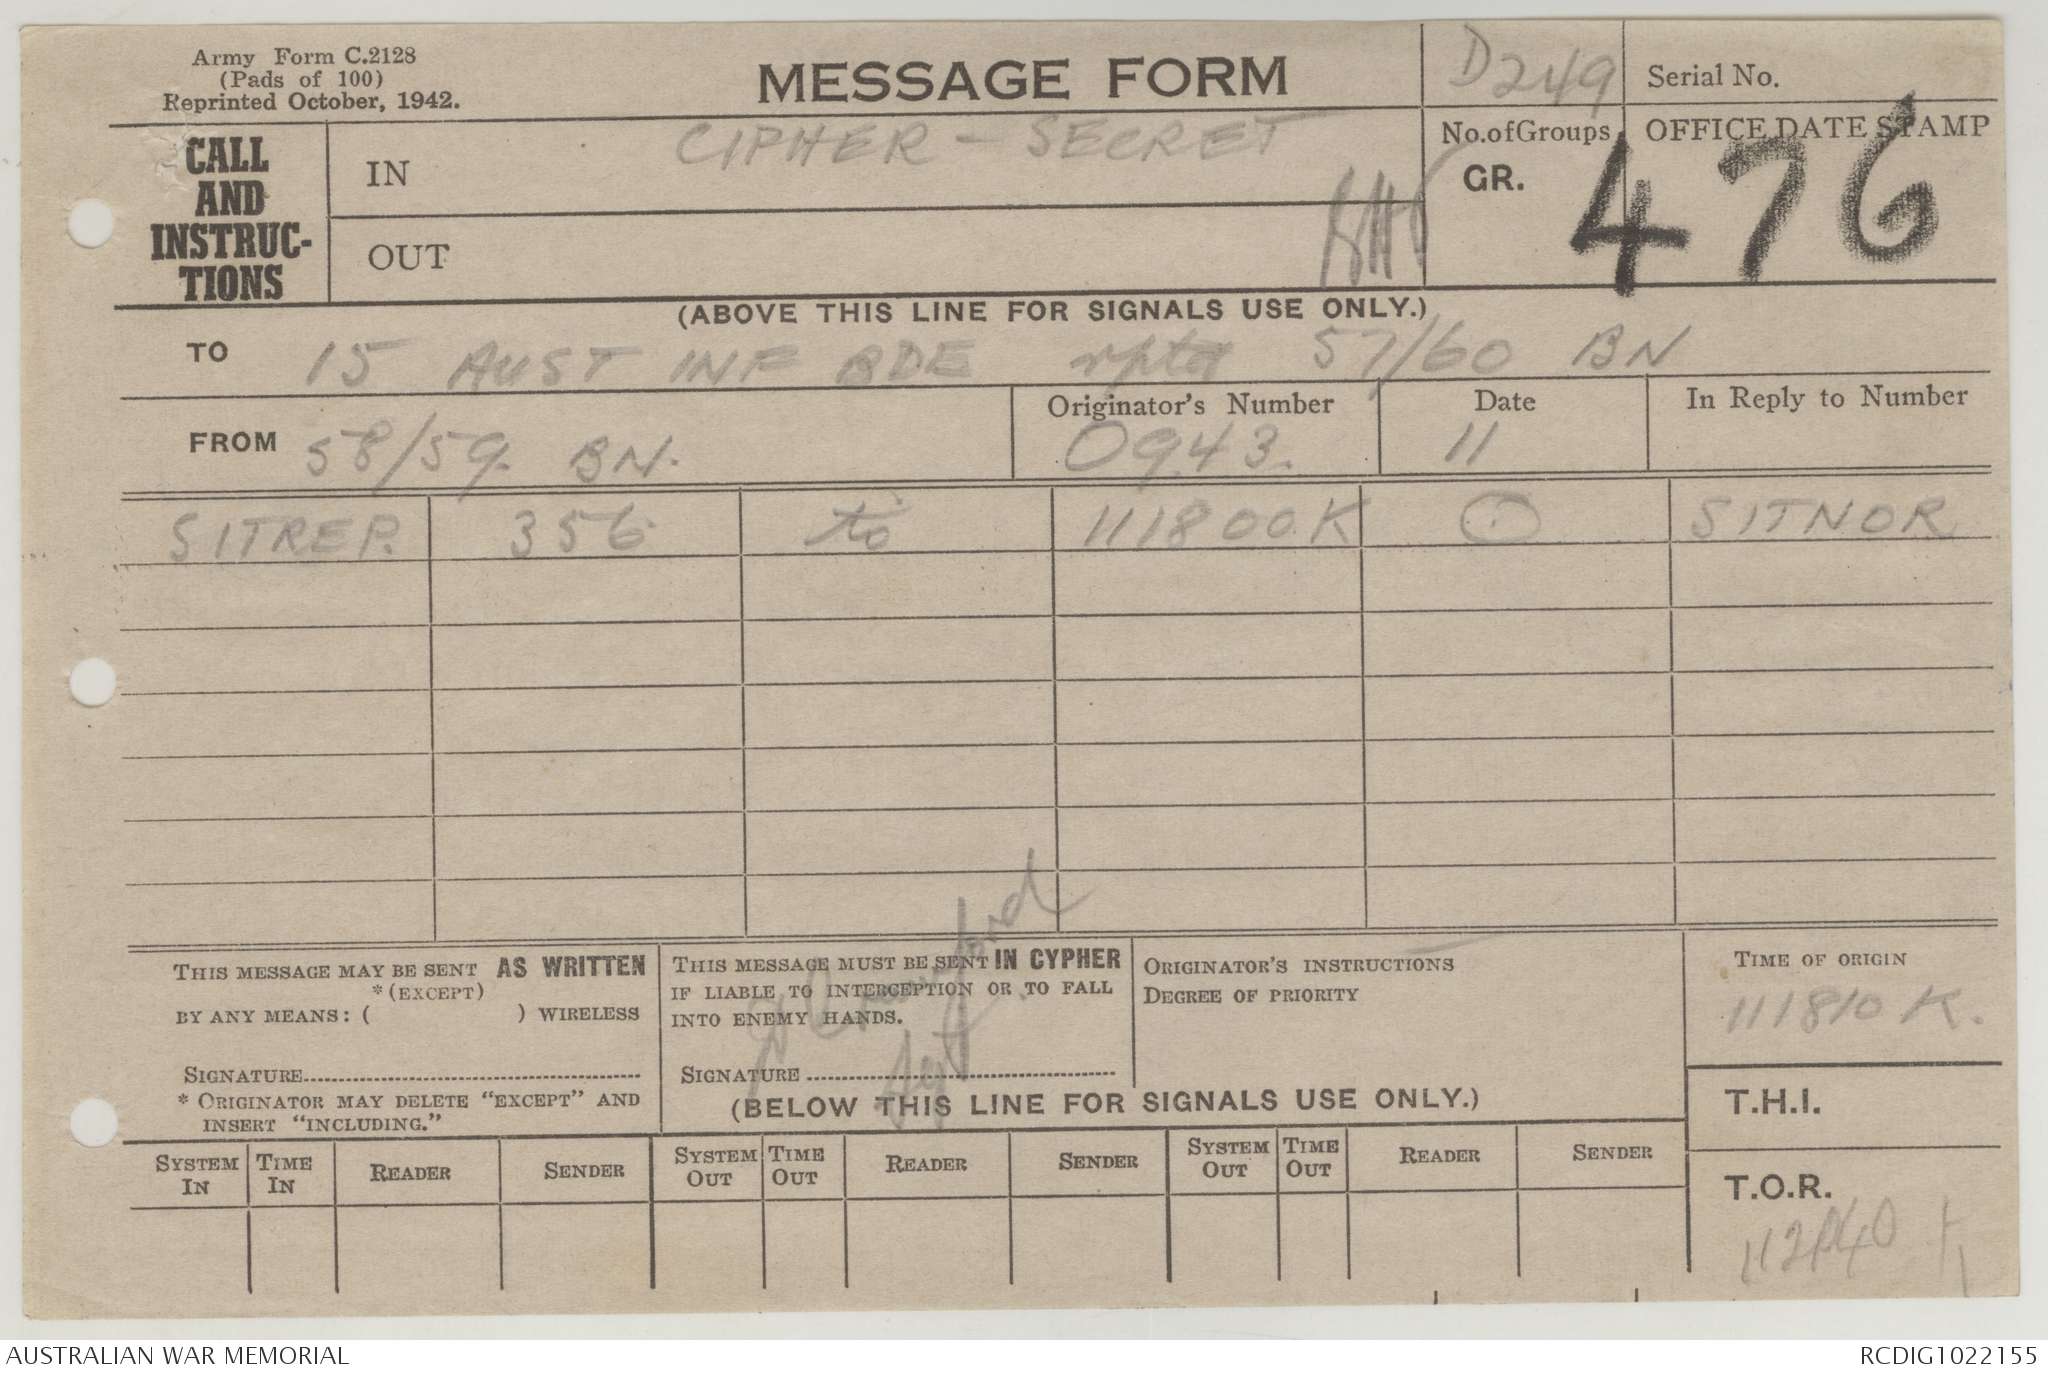 Army Form C.2128
(Pads of 100)
Reprinted October, 1942.
MESSAGE FORM
D249
Serial No.
CALL
AND
INSTRUC-
TIONS
IN
CIPHER - SECRET
OUT
No. of Groups
GR.
OFFICE DATE STAMP
476
(ABOVE THIS LINE FOR SIGNALS USE ONLY.)
TO 15 AUST INF BDE rptd 57/60 BN
FROM 58/59 BN.
Originator's Number
0943.
Date
11
In Reply to Number
SITREP. 356 to 111800K ⊙ SITNOR
THIS MESSAGE MAY BE SENT AS WRITTEN
*(EXCEPT)
BY ANY MEANS: ( ) WIRELESS
SIGNATURE
* ORIGINATOR MAY DELETE "EXCEPT" AND
INSERT "INCLUDING."
THIS MESSAGE MUST BE SENT IN CYPHER
IF LIABLE TO INTERCEPTION OR TO FALL
INTO ENEMY HANDS.
SIGNATURE
Sgt
ORIGINATOR'S INSTRUCTIONS
DEGREE OF PRIORITY
TIME OF ORIGIN
111810 K.
T.H.I.
(BELOW THIS LINE FOR SIGNALS USE ONLY.)
SYSTEM IN TIME IN READER SENDER SYSTEM OUT TIME OUT READER SENDER SYSTEM OUT TIME OUT READER SENDER
T.O.R.
AUSTRALIAN WAR MEMORIAL
RCDIG1022155